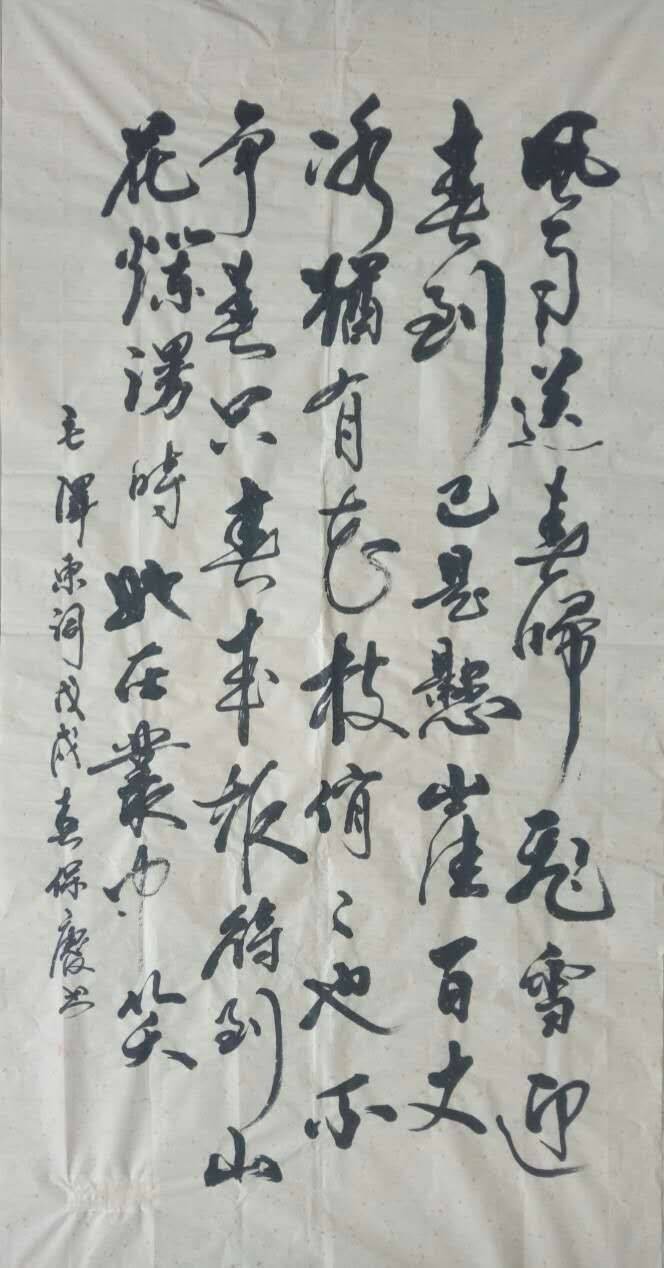 風雨送春歸飛雪迎
春到已是懸崖百丈
冰猶有花枝俏々也不
争春只春來報待到山
花爛漫時她在叢中笑
毛澤東詞戊戌保慶书